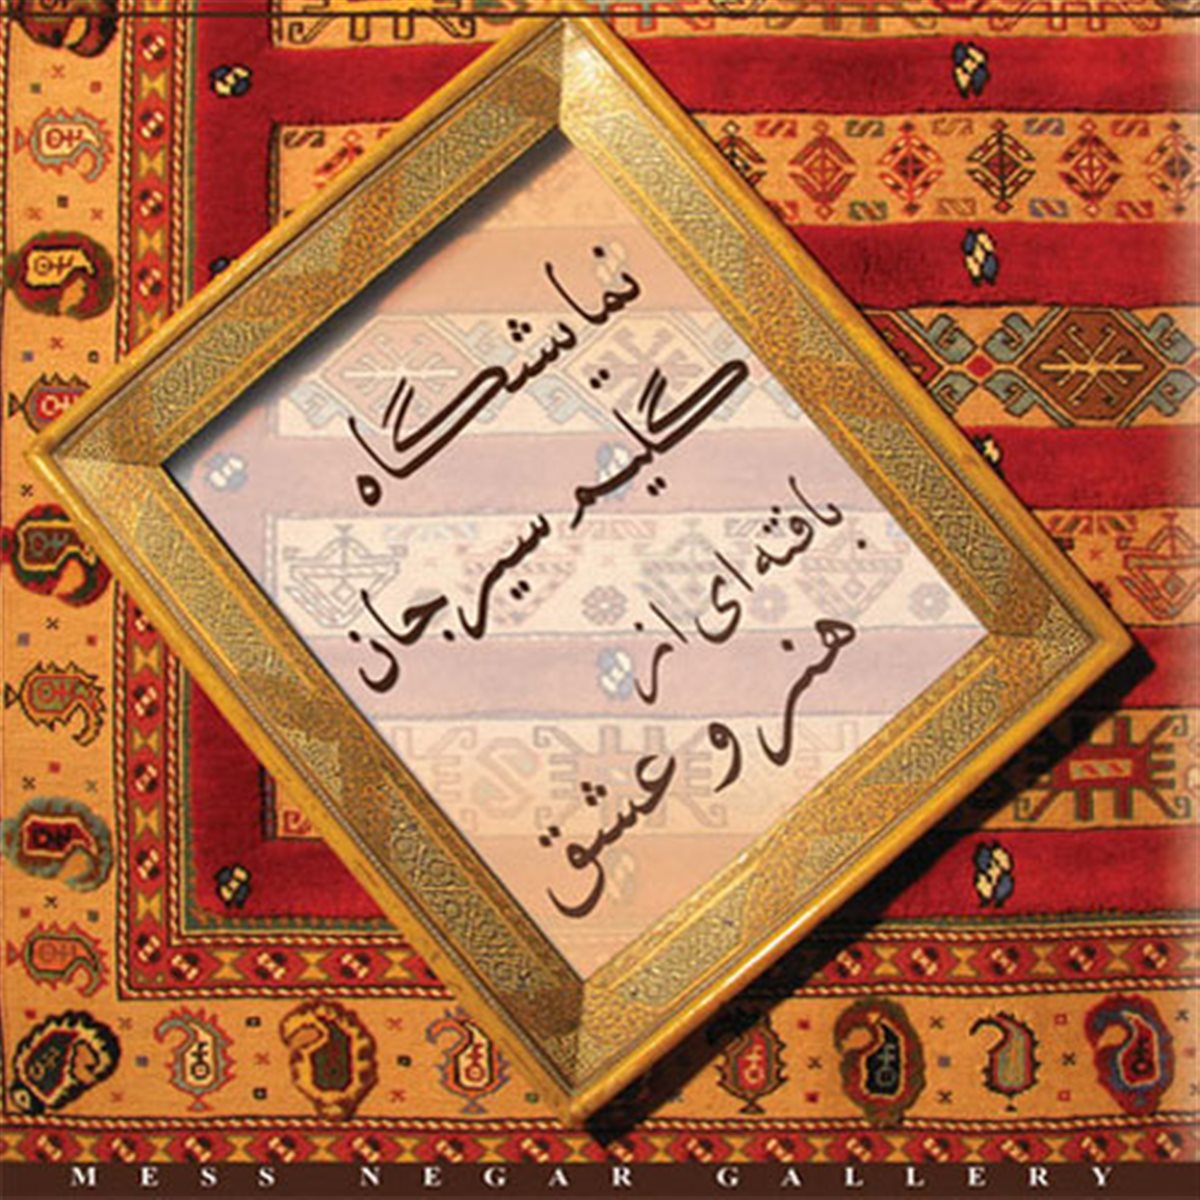 نمایشگاه
گلیم سیرجان
بافته ای از
هنر و عشق
MESS NEGAR GALLERY